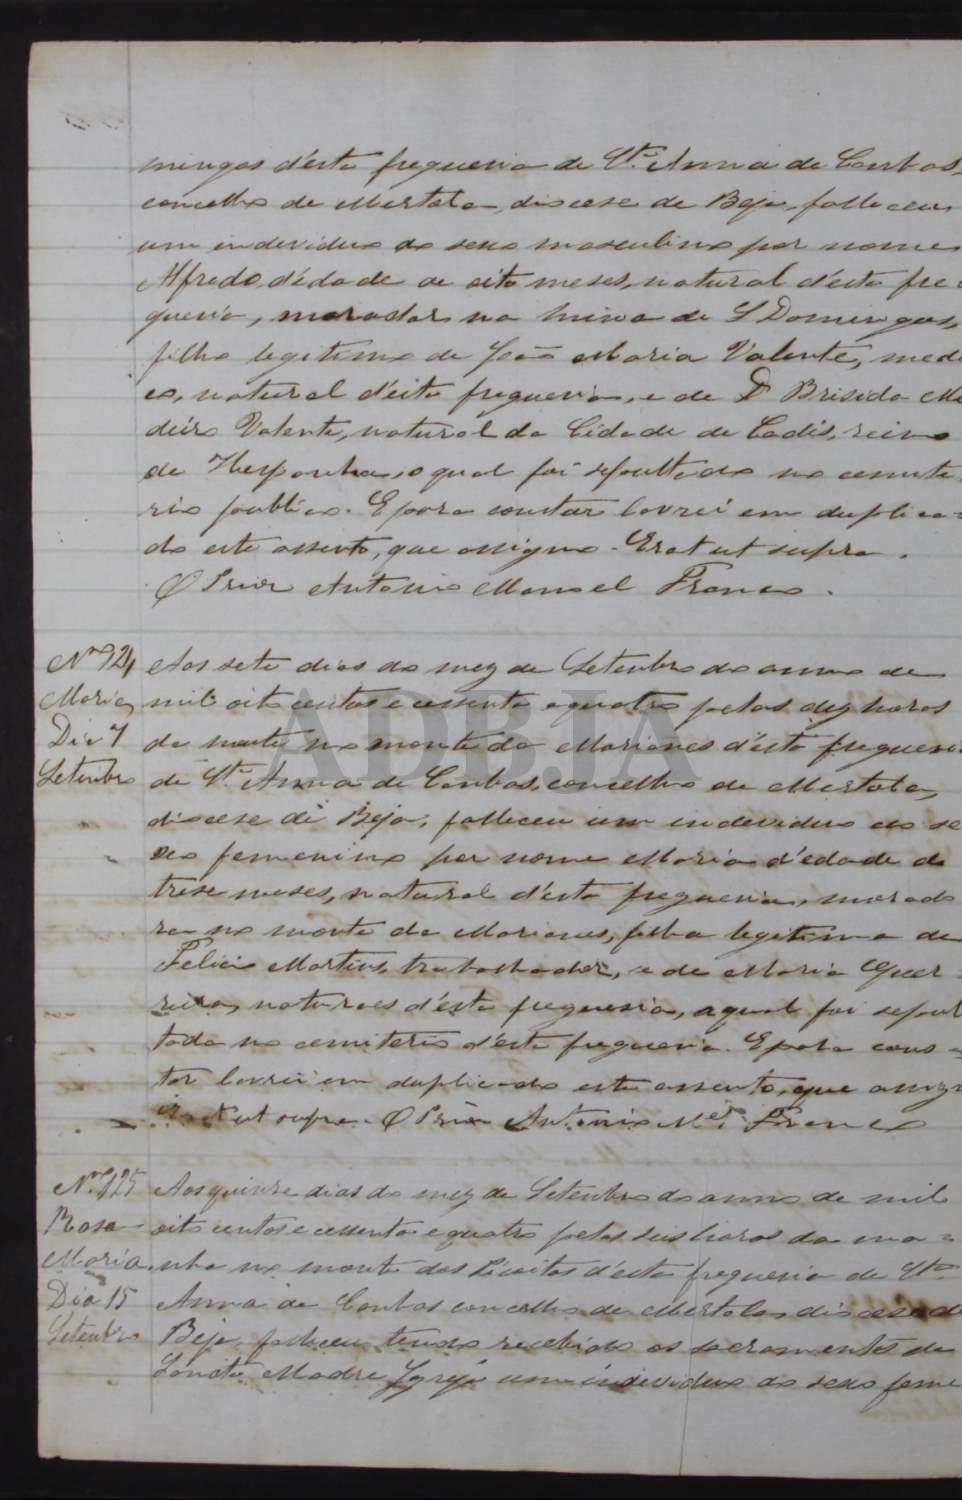 mingos d'esta freguesia de Sta. Anna de Cambas,
concelho de Mertola, diocese de Beja, falleceu
um individuo do sexo masculino por nome
Alfredo, d'edade de oito meses, natural d'esta fre-
guesia, morador na mina de S Domingos,
filho legitimo de João Maria Valente, medi
co, natural d'esta freguesia, e de D Brisida Me
deiro Valente, natural da Cidade de Cadis, reino
de Hespanha, o qual foi sepultado no cemite-
rio publico. E para constar lavrei em duplica-
do este assento, que assigno. Erat ut supra.
O Prior Antonio Manoel Franco.
Nº 124
Maria
Dia 7
Setembro
Aos sete dias do mez de Setembro do anno de
mil oito centos e cessenta e quatro pelas dez horas
da noute no monte da Marianes d'esta freguesia
de Sta. Anna de Cambas, concelho de Mertola,
diocese de Beja, falleceu um individuo do se
xo femenino por nome Maria d'edade de
trese meses, natural d'esta freguesia, morado
ra no monte da Marianes, filha legitima de
Felicio Martins, trabalhador, e de Maria Guer-
reira, naturaes d'esta freguesia, a qual foi sepul
tada no cemiterio d'esta freguesia. E para cons-
tar lavrei em duplicado este assento, que assig
Erat ut supra. O Prior Antonio Mel. Franco
Nº 125
Rosa
Maria
Dia 15
Setembro
Aos quinze dias do mez de Setembro do anno de mil
oito centos e cessenta e quatro pelas seis horas da ma-
nha no monte dos d'esta freguesia de Sta.
Anna de Cambas concelho de Mertola, diocese de
Beja, falleceu tendo recebido os sacramentos da
Sancta Madre Igreja um individuo do sexo feme
ADBJA